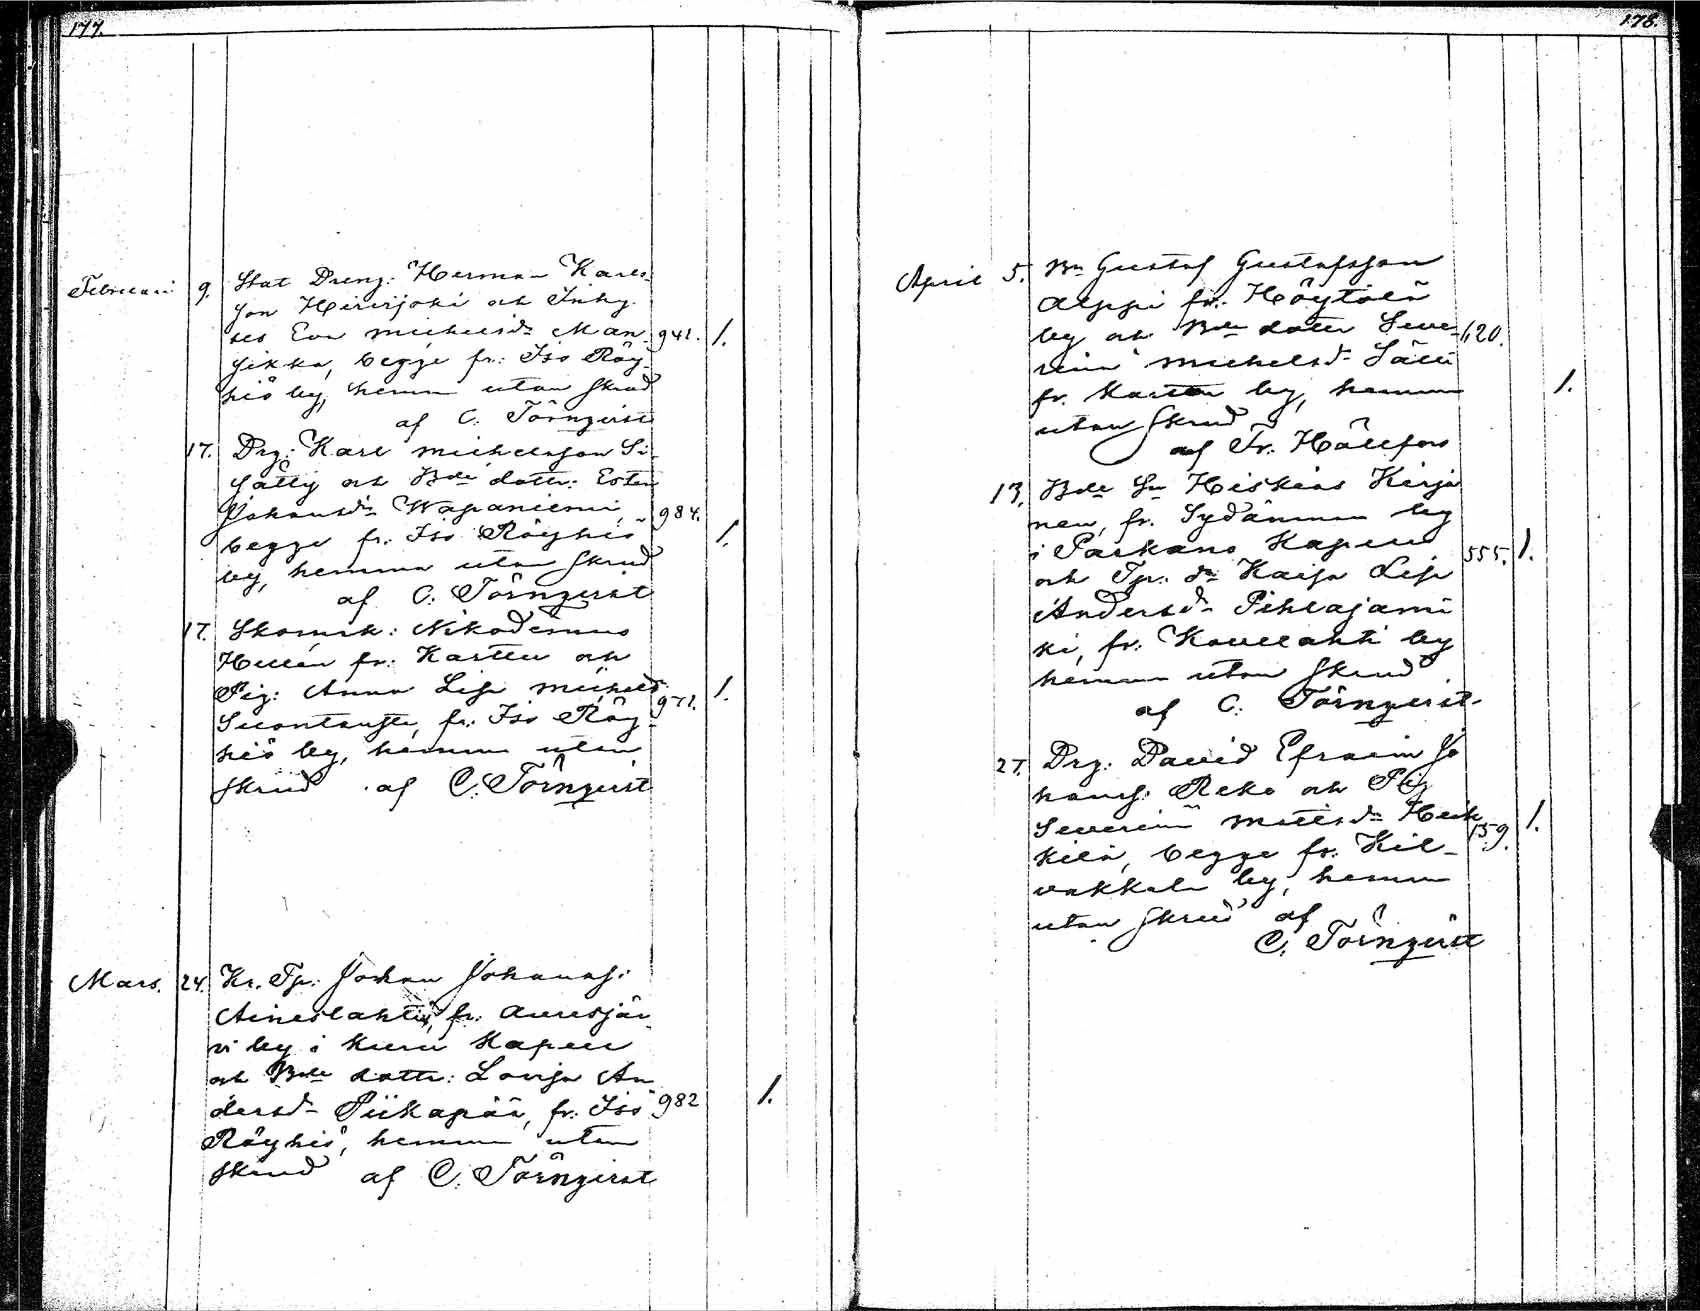 177.
Februari 9. Stat Dreng: Herman Karls-
son Hirvijoki och Inhy-
ses Eva Michelsdr Man- 941. 1.
sikka, begge fr: Iso Röy-
hiö by, hemma utan skrud
af C. Törnqvist
17. Drg: Karl Michelsson Si-
sätty och Bde dotter: Ester
Johansdr Wapaniemi, 984.
begge fr. Iso Röyhiö 1.
by, hemma utan skrud
af C. Törnqvist
17. Skomak: Nikodemus
Hellén fr: Karttu och
Pig: Anna Lisa Michelsd
Suontausta, fr: Iso Röy- 971. 1.
hiö by, hemma utan
skrud af C. Törnqvist
Mars. 24. Kr. Tp: Johan Johanss:
Aineslahti, fr: Auresjär-
vi by i Kuru Kapell
och Bde dotter: Lovisa An-
dersdr Piikapää, fr. Iso 982 1.
Röyhiö, hemma utan
skrud af C. Törnqvist
178.
April 5. Bn Gustaf Gustafsson
Alppi fr. Höytölä
by och Bde dotter Seve- 1,120.
rina Michelsdr Sälli
fr. Karttu by, hemma 1.
utan skrud
af Fr. Hällfors
13. Bde Sn Hiskias Kirja
nen, fr. Sydänmaa by
i Parkano Kapell 555. 1.
och Tp: dr Kaisa Lisa
Andersdr Pihlajamä
ki, fr. Kovelahti by
hemma utan skrud
af C. Törnqvist.
27. Drg: David Efraim Jo
hanss: Reko och Pig
Severina Mattsdr Heik
kilä, begge fr. Kil- 159. 1.
vakkala by, hemma
utan skrud af
C. Törnqvist